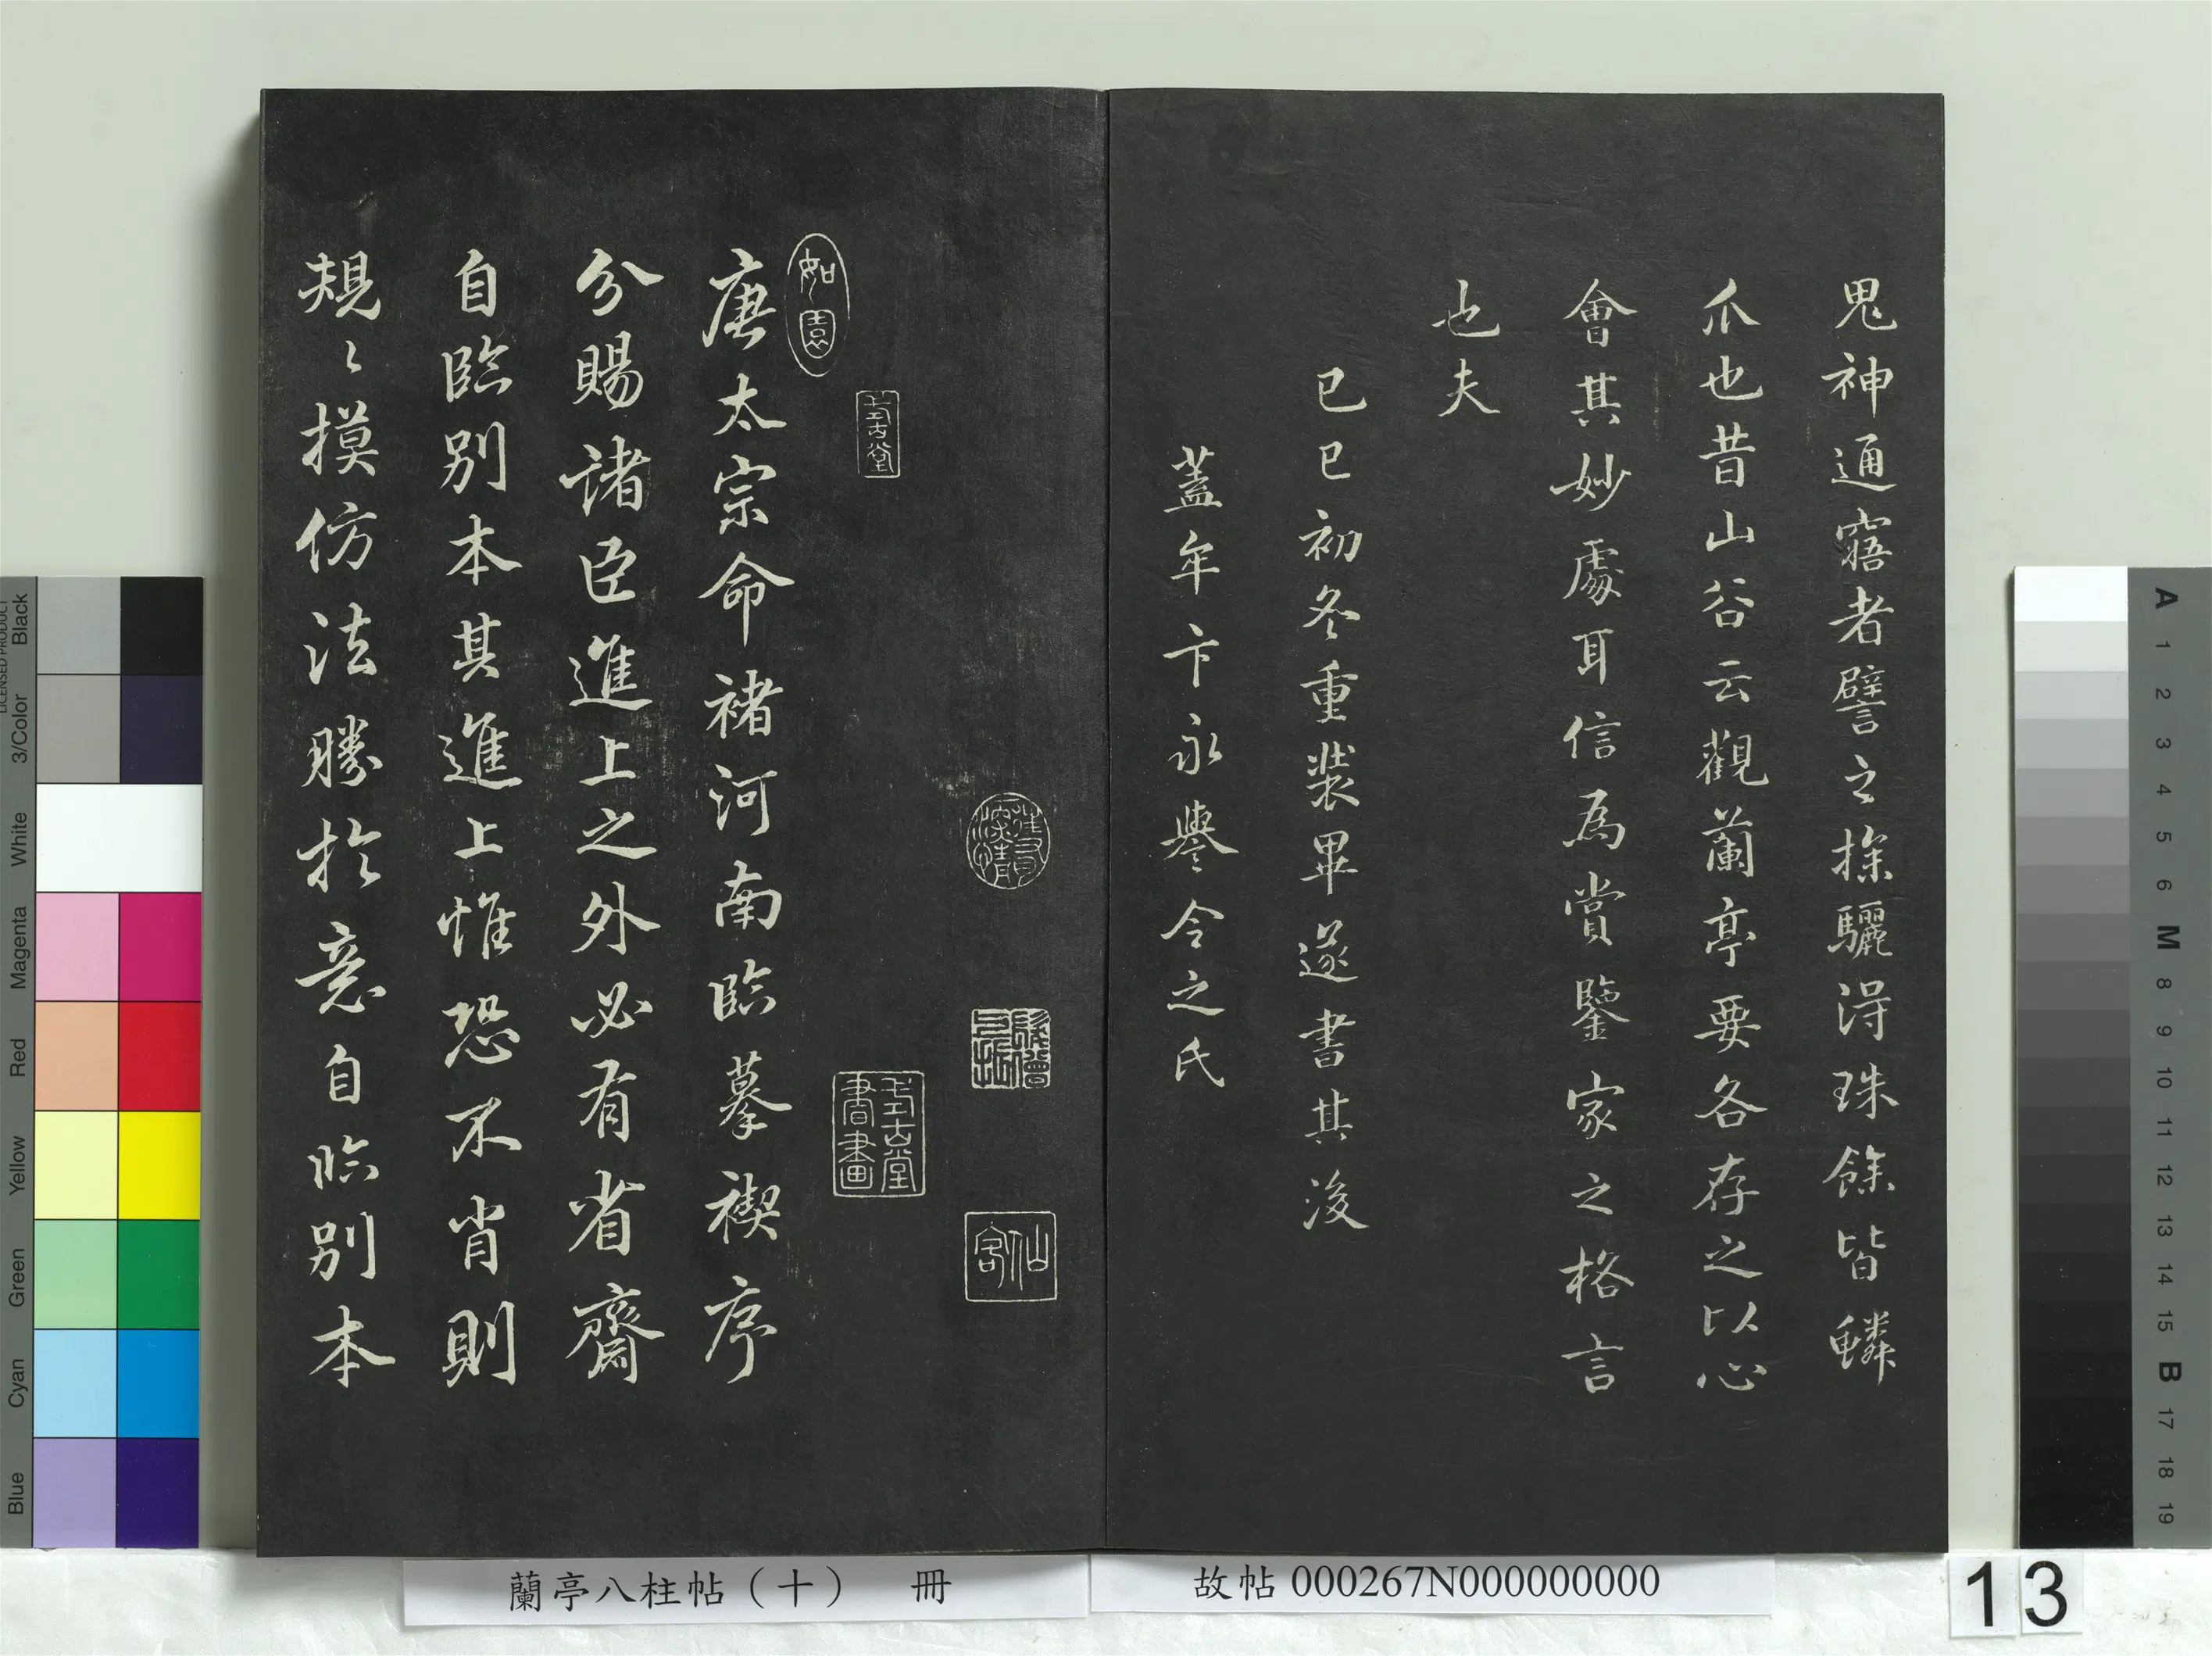 鬼神通寤者譬之探驪淂珠餘皆鱗
爪也昔山谷云觀蘭亭要各存之以心
會其妙處耳信為賞鑒家之格言
也夫
已巳初冬重裝畢遂書其後
蓋牟卞永譽令之氏
仙客
式古堂書畫
式古堂
如園
唐太宗命褚河南臨摹禊序
分賜諸臣進上之外必有省齋
自臨別本其進上惟恐不肖則
規〻摸仿法勝扵意自臨別本
蘭亭八柱帖（十） 冊
故帖 000267N000000000
13
LICENSED PRODUCT
Black
3/Color
White
Magenta
Red
Yellow
Green
Cyan
Blue
A
1
2
3
4
5
6
M
8
9
10
11
12
13
14
15
B
17
18
19